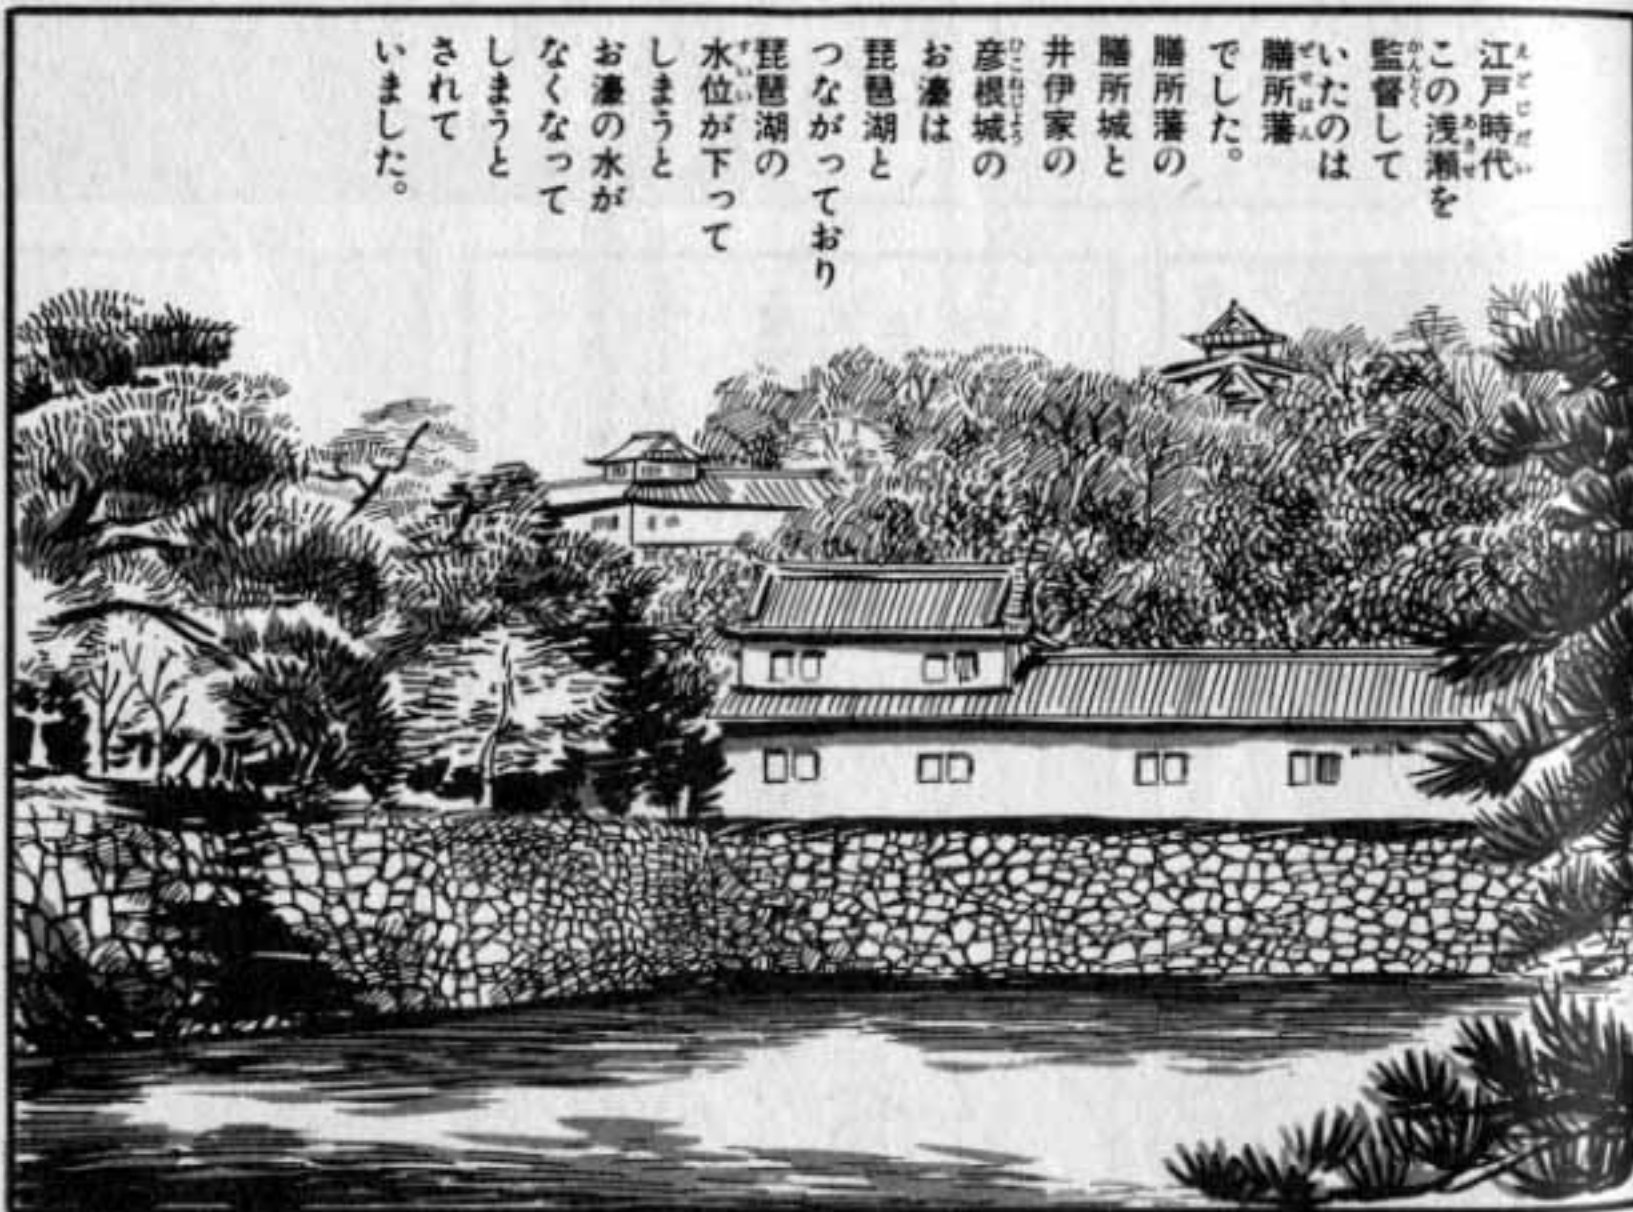 江戸時代
この浅瀬を
監督して
いたのは
膳所藩
でした。
膳所藩の
膳所城と
井伊家の
彦根城の
お濠は
琵琶湖と
つながっており
琵琶湖の
水位が下って
しまうと
お濠の水が
なくなって
しまうと
されて
いました。